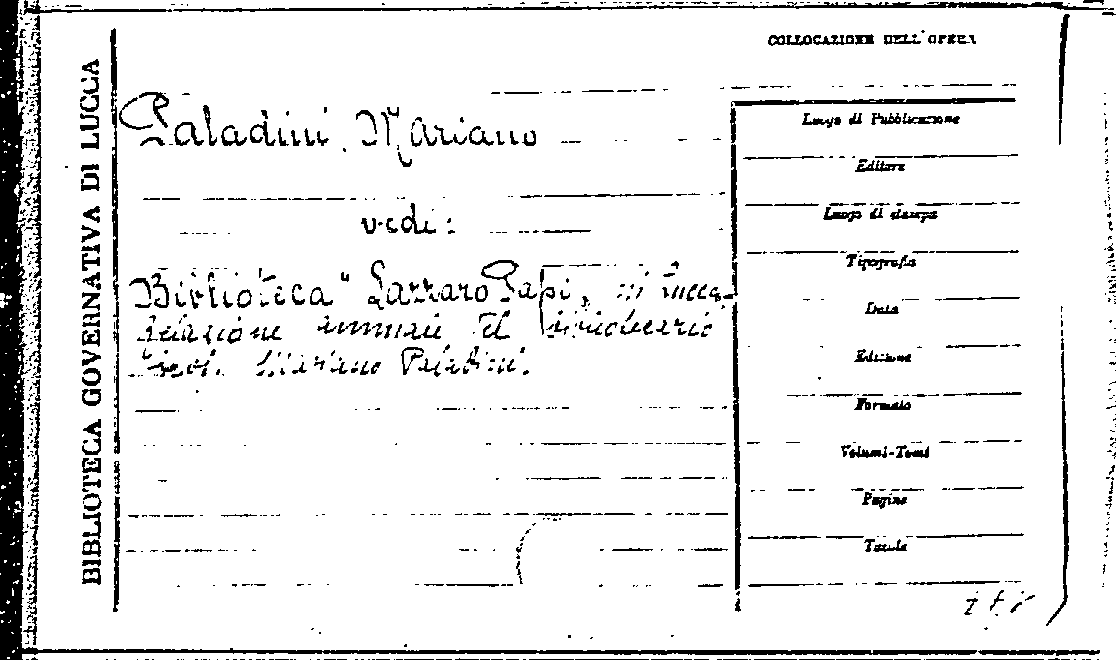 BIBLIOTECA GOVERNATIVA DI LUCCA
COLLOCAZIONE DELL'OPERA
Paladini, Mariano
vedi:
Biblioteca "Lazzaro Papi, in Lucca-
Relazione annuale del bibliotecario
Prof. Mariano Paladini.
Luogo di Pubblicazione
Editore
Luogo di stampa
Tipografia
Data
Edizione
Formato
Volumi-Tomi
Pagine
Tavole